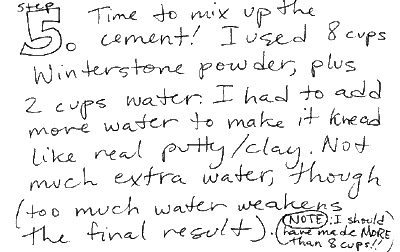 step
5. Time to mix up the
cement! I used 8 cups
Winterstone powder, plus
2 cups water. I had to add
more water to make it knead
like real putty/clay. Not
much extra water, though
(too much water weakens
the final result). (NOTE: I should
have made MORE
than 8 cups!!)